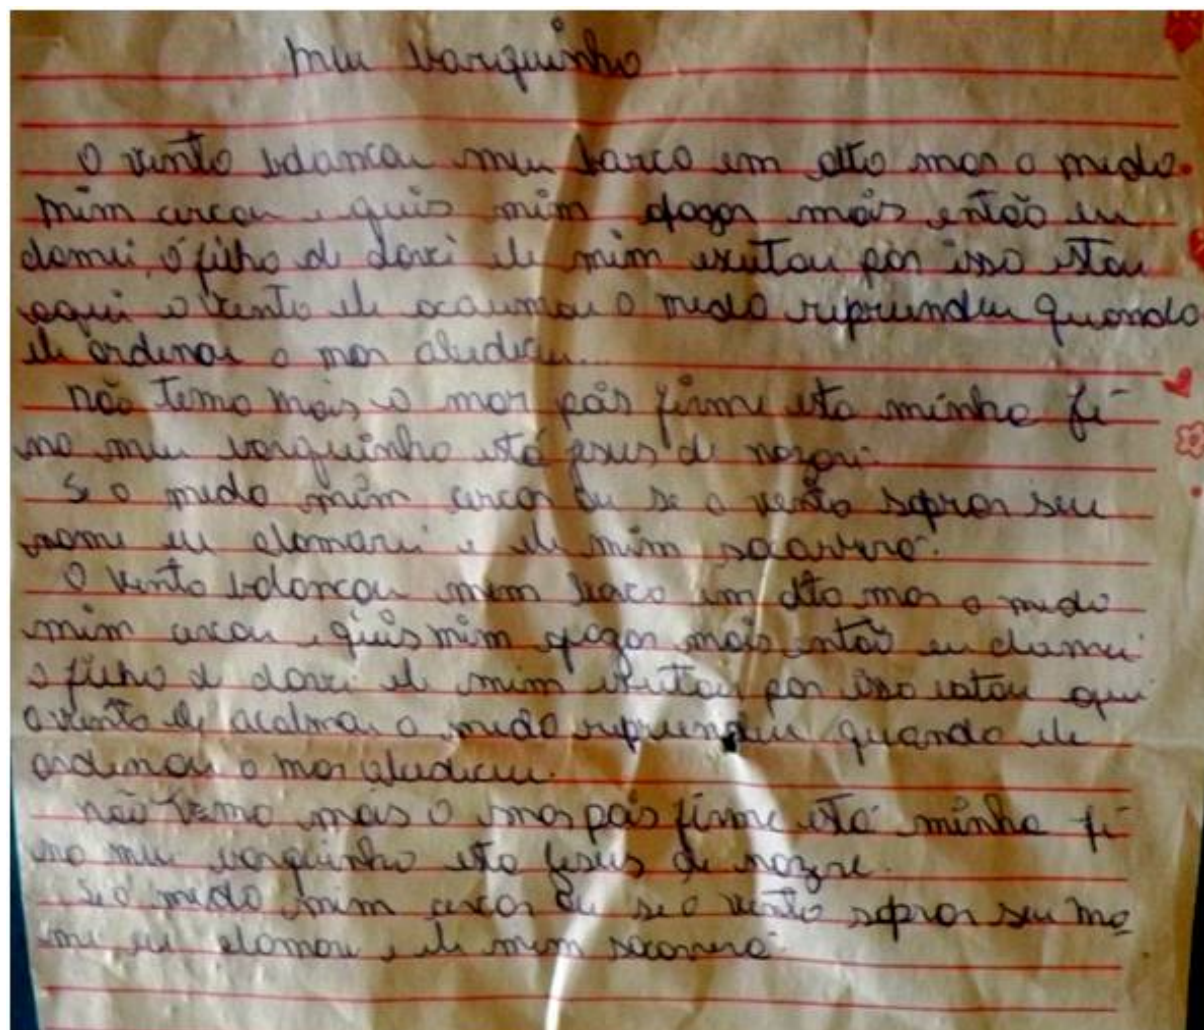 Meu barquinho
O vento balancou meu barco em alto mar o medo
mim cercou e quis mim afogar mais então eu
clamei, ó filho de davi ele mim escutou por isso estou
aqui o vento ele acaumou o medo repreendeu quando
ele ordenou o mar obedeceu...
não temo mais o mar pois firme esta minha fé
no meu barquinho está jesus de nazaré.
Se o medo mim cercar ou se o vento soprar seu
nome eu clamarei e ele mim socorrerá.
O vento balancou meu barco em alto mar o medo
mim cercou e quis mim afogar mais então eu clamei
o filho de davi ele mim escutou por isso estou aqui
o vento ele acalmou o medo repreendeu quando ele
ordenou o mar obedeceu.
não temo mais o mar pois firme está minha fé
no meu barquinho esta jesus de nazare.
Se o medo mim cercar ou se o vento soprar seu no
me eu clamou e ele mim socorrerá.